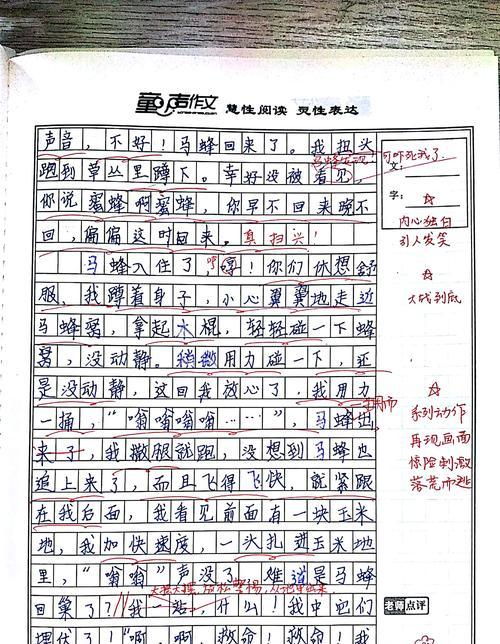 童声作文 慧性阅读 灵性表达
声音,不好!马蜂回来了。我扭头
马蜂发现! 可吓死我了
跑到草丛里蹲下。幸好没被看见,
文:
你说蜜蜂啊蜜蜂,你早不回来晚不
字:
回,偏偏这时回来。真扫兴!
内心独白
引人发笑
马蜂入住了,哼!你们休想舒
服,我蹲着身子,小心翼翼地走近
大战到底
马蜂窝,拿起木棍,轻轻碰一下蜂
窝,没动静。稍微用力碰一下,还
是没动静,这回我放心了,我用力
一捅,“嗡嗡嗡嗡……”,马蜂出
来了,我撒腿就跑,没想到马蜂也
追上来了,而且飞得飞快,就紧跟
系列动作
再现画面
惊险刺激
落荒而逃
在我后面,我看见前面有一块玉米
地,我加快速度,一头扎进玉米地
里,“嗡嗡”声没了,难道是马蜂
回巢了?我一站,什么!我中它们
老师点评
埋伏了!“啊!救命!救命!